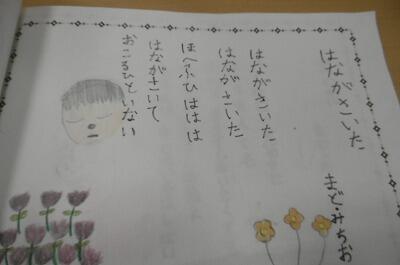 はながさいた
まど・みちお
はながさいた
はながさいた
はへふひ ははは
はながさいて
おこるひと いない